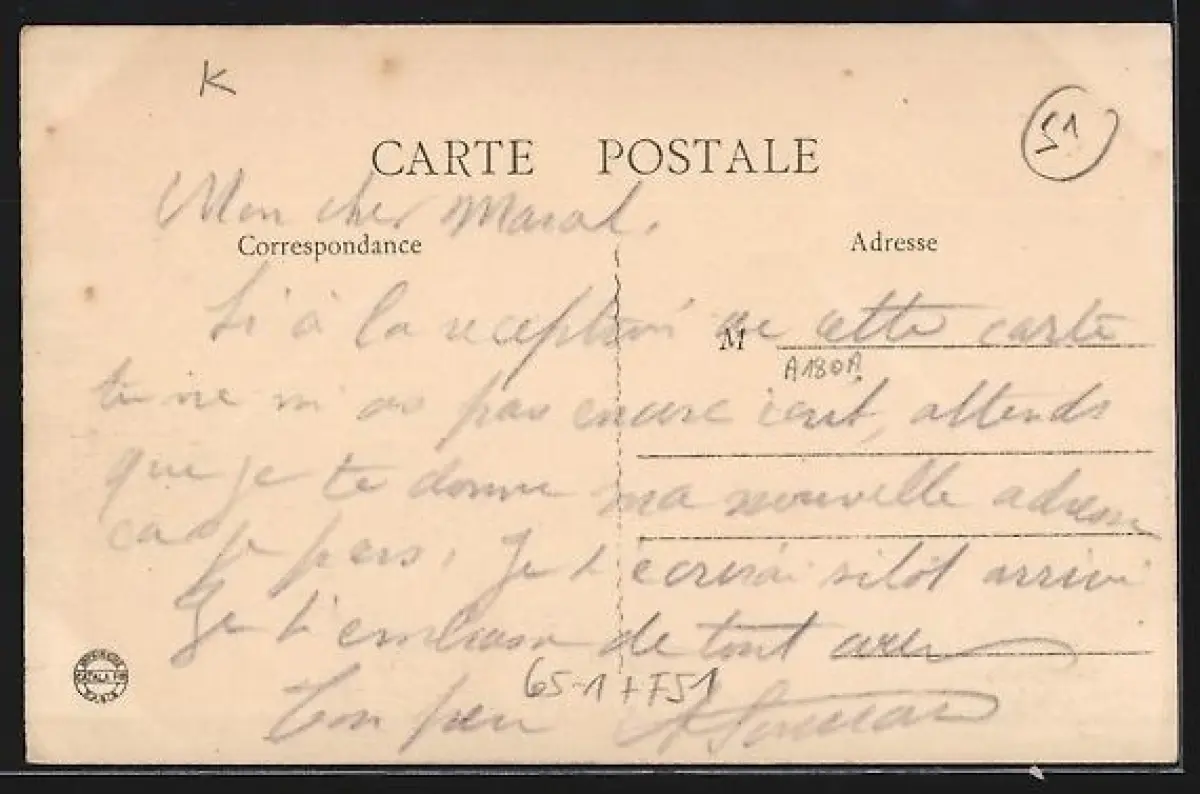 K
51
CARTE POSTALE
Mon cher Marcel.
Correspondance
Adresse
Si à la reception de cette carte
M
A180A
tu ne m'as pas encore écrit, attends
que je te donne ma nouvelle adresse
car je pars, Je t'écrirai sitôt arrivé
Je t'embrasse de tout cœur
65-1+F51
Ton père